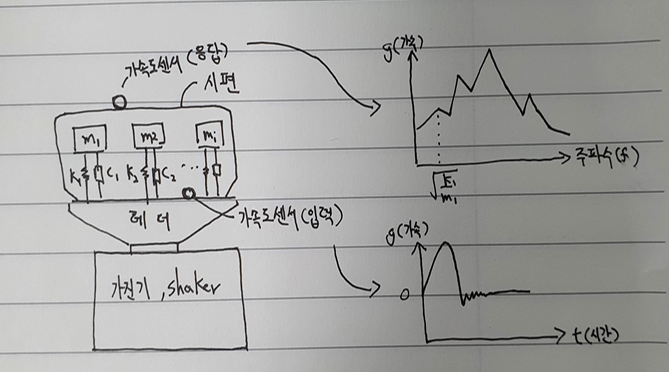 가속도센서 (응답)
시편
m₁ m₂ mᵢ
K₁ C₁ K₂ C₂ ...
헤더
가속도센서 (입력)
가진기, shaker
g(가속)
주파수(f)
√E₁/m₁
g(가속)
0
t(시간)